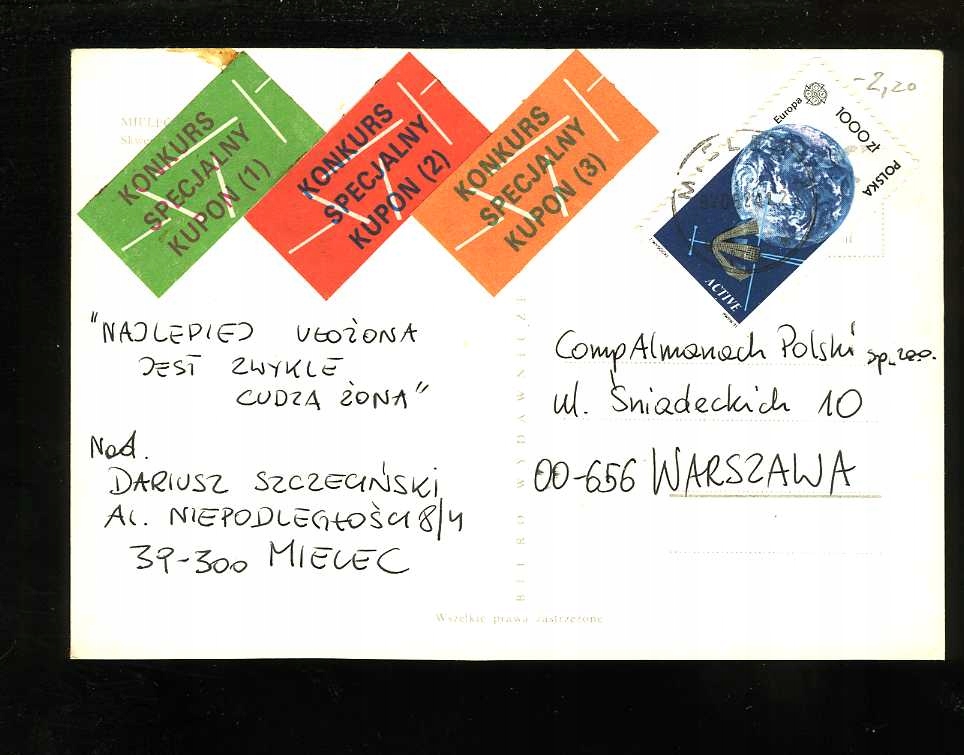 KONKURS
SPECJALNY
KUPON (1)
KONKURS
SPECJALNY
KUPON (2)
KONKURS
SPECJALNY
KUPON (3)
-2,20
Europa
1000 zł
POLSKA
ACTIVE
"NAJLEPIEJ UŁOŻONA
JEST ZWYKLE
CUDZA ŻONA"
Nad.
DARIUSZ SZCZECIŃSKI
Al. NIEPODLEGŁOŚCI 8/4
39-300 MIELEC
CompAlmanach Polski sp. zoo.
ul. Śniadeckich 10
00-656 WARSZAWA
Wszelkie prawa zastrzeżone